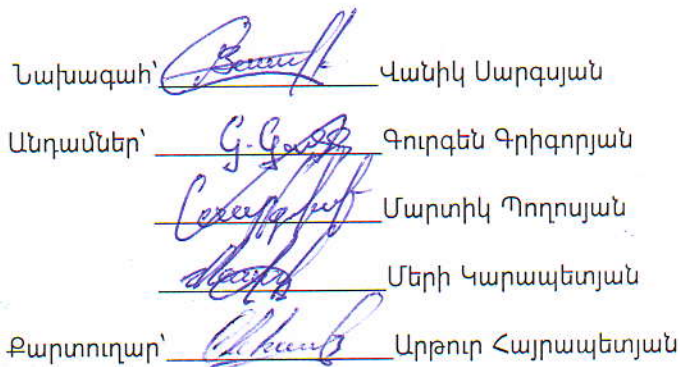 Նախագահ՝ Վանիկ Սարգսյան
Անդամներ՝ Գուրգեն Գրիգորյան
Մարտիկ Պողոսյան
Մերի Կարապետյան
Քարտուղար՝ Արթուր Հայրապետյան